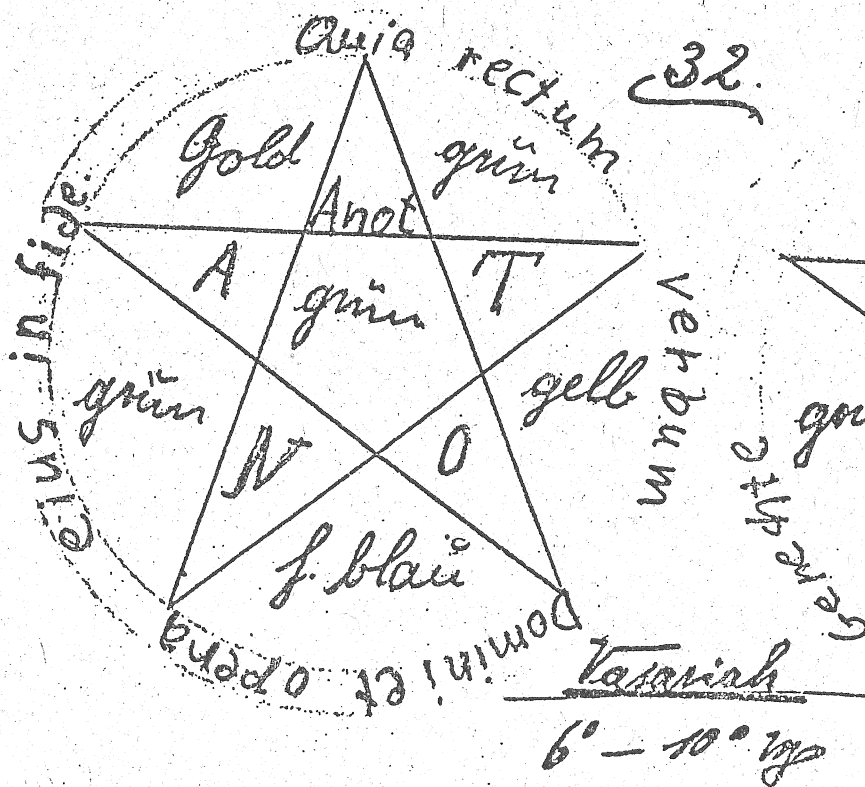 Quia rectum verbum Domini et opera eius in fide.
32.
Gold
grün
Anot
A
T
grün
grün
gelb
N
O
f. blau
Gerechte
Vasariah
6° — 10°